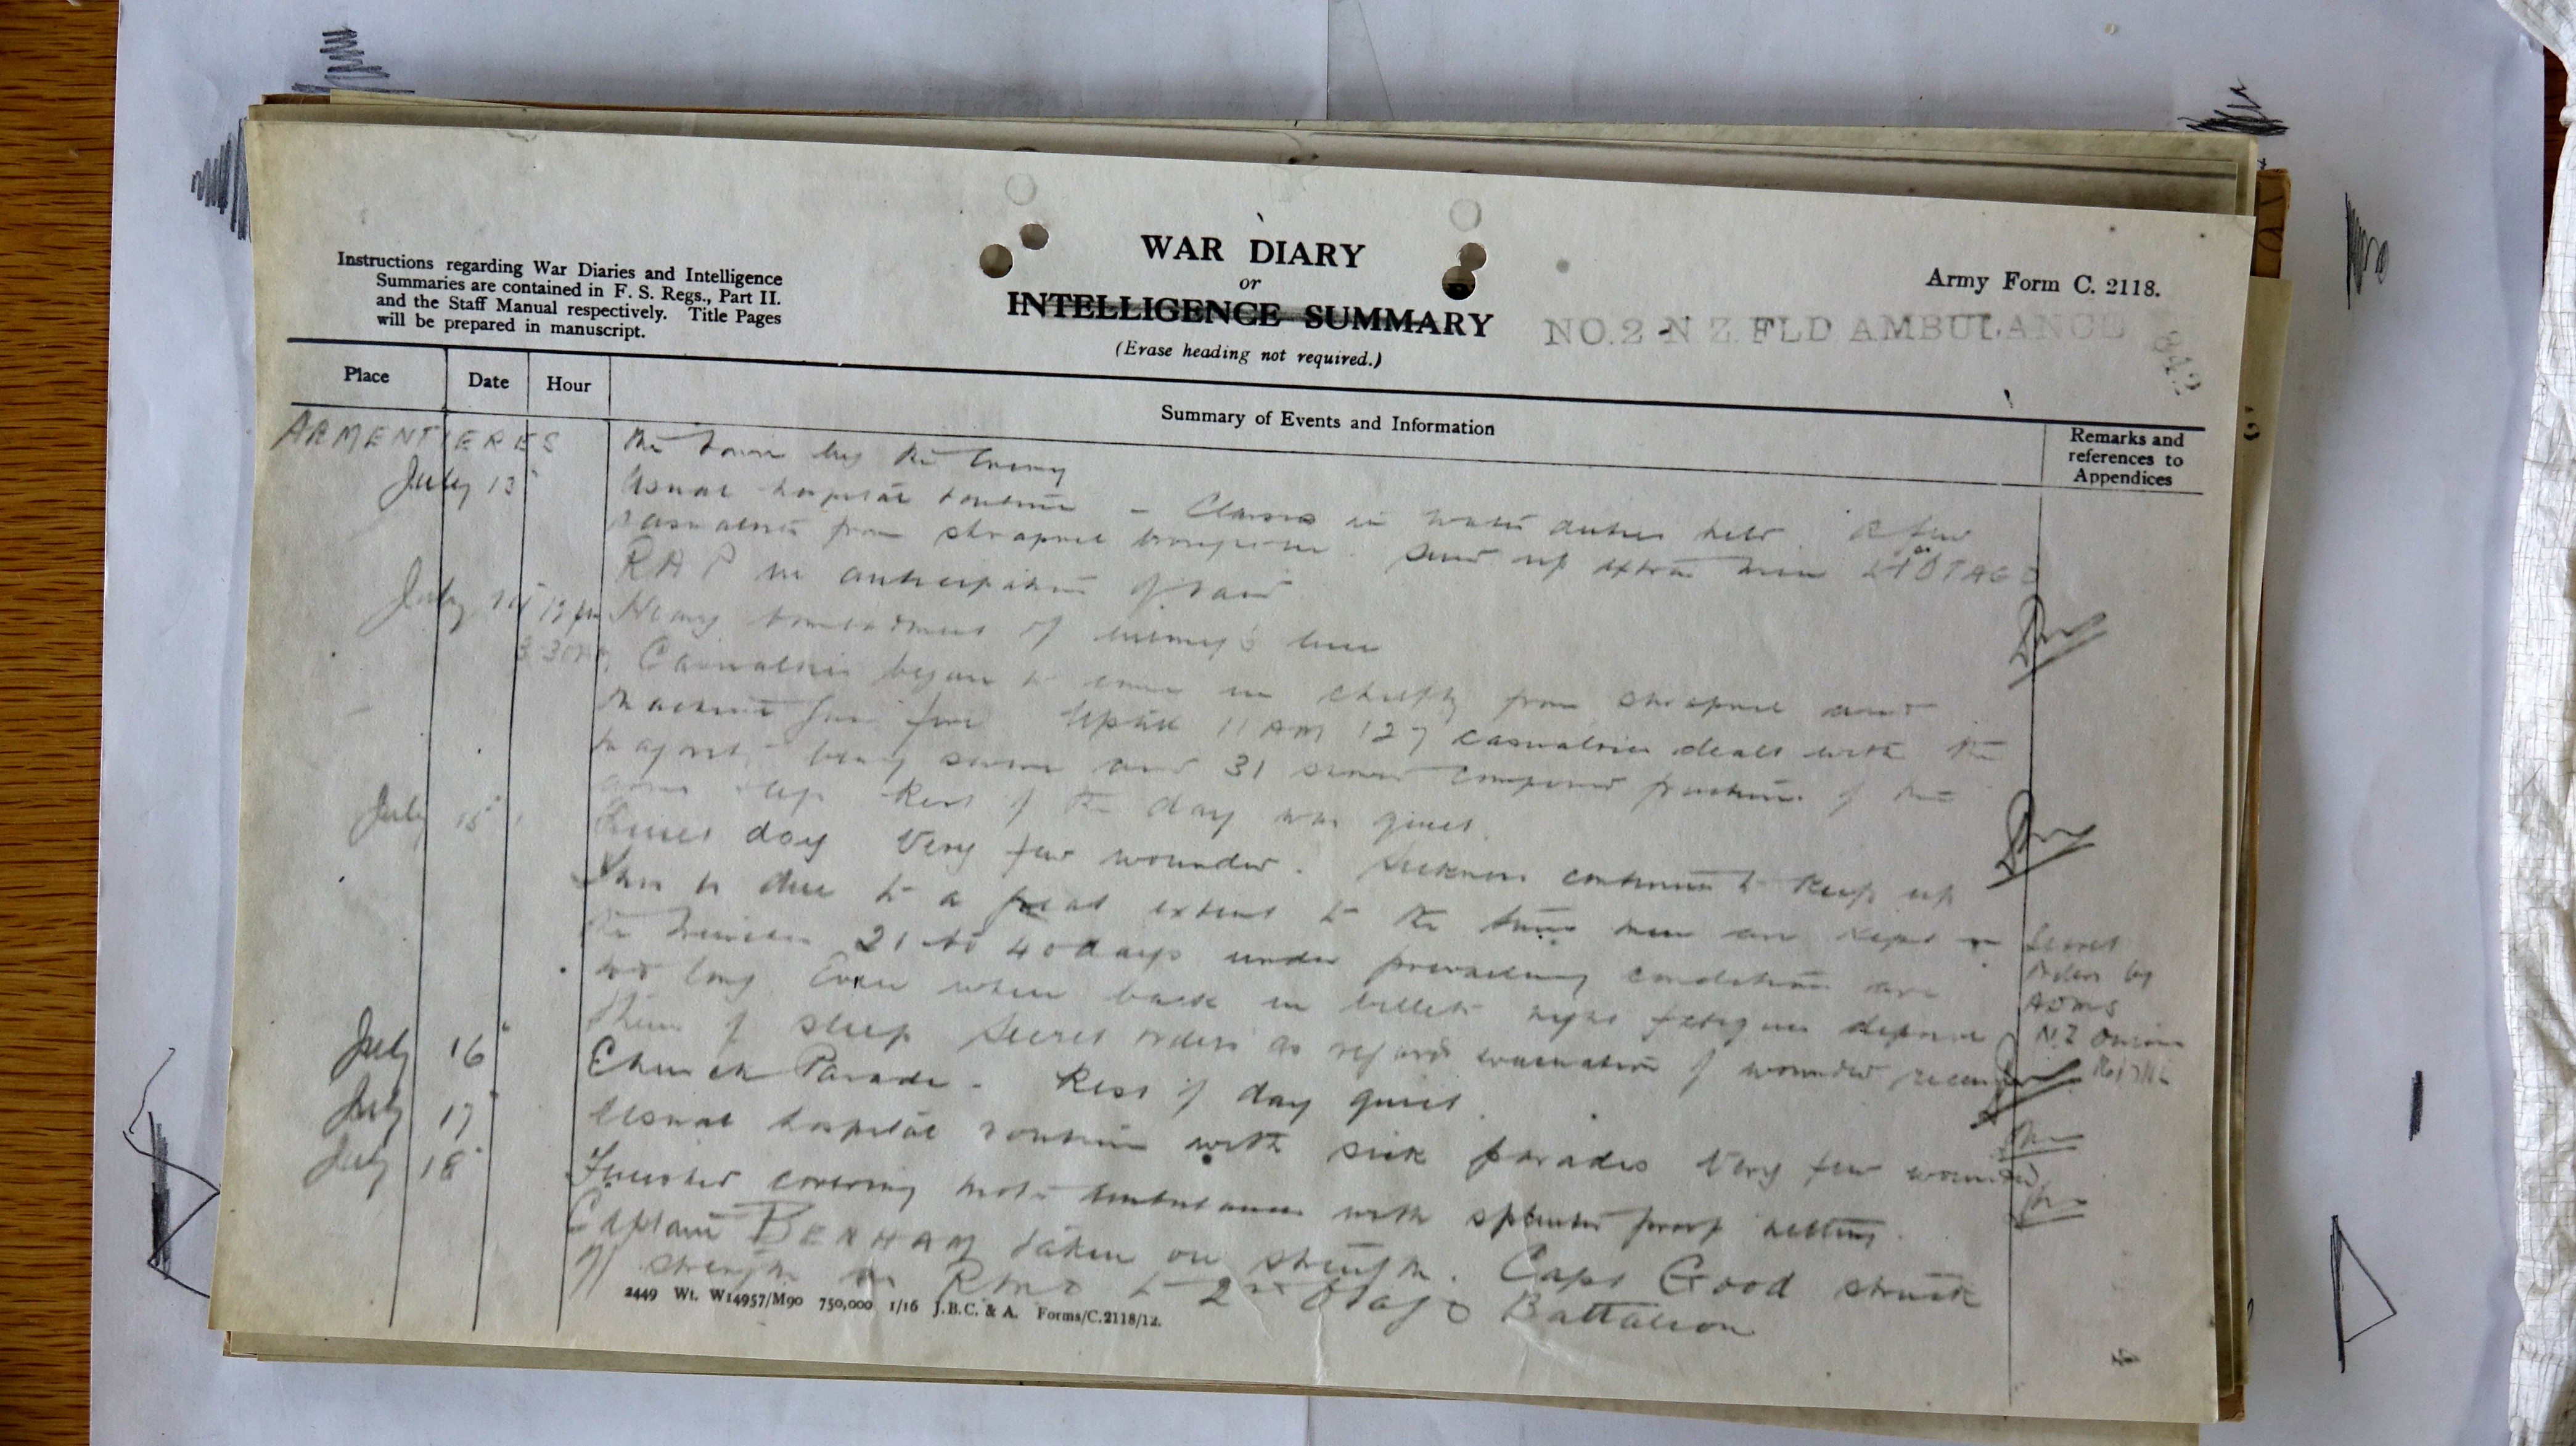 WAR DIARY
or
INTELLIGENCE SUMMARY
(Erase heading not required.)
Instructions regarding War Diaries and Intelligence
Summaries are contained in F. S. Regs., Part II.
and the Staff Manual respectively. Title Pages
will be prepared in manuscript.
Army Form C. 2118.
NO.2 N Z FLD AMBULANCE
842
Place
Date
Hour
Summary of Events and Information
Remarks and
references to
Appendices
ARMENTIERES
the town by the Enemy
July 13
Usual hospital routine - Classes in water duties held. A few
casualties from shrapnel Sent up extra men to OTAGO
RAP in anticipation of raid
July 14 12 pm Heavy bombardment of enemy's line
3.30 AM Casualties began to come in chiefly from shrapnel and
machine gun fire Up till 11 AM 127 casualties dealt with the
majority being severe and 31 compound fractures of the
arms legs Rest of the day was quiet.
July 15
Quiet day Very few wounded. Sickness continues to keep up
This is due to a great extent to the time men are kept in
the trenches 21 to 40 days under prevailing conditions are
too long Even when back in billets night fatigues deprive
them of sleep Secret orders as regards evacuation of wounded received
Secret
orders by
ADMS
N.Z Division
July 16
Church Parade - Rest of day quiet.
July 17
Usual hospital routine with sick parades Very few wounded
July 18
Finished covering motor ambulances with splinter proof netting.
Captain BENHAM taken on strength. Capt Good struck
off strength as RMO to 2nd Otago Battalion
2449 Wt. W14957/M90 750,000 1/16 J.B.C. & A. Forms/C.2118/12.
4